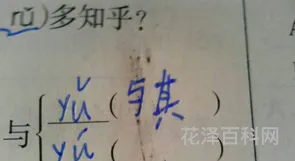 rǔ)多知乎?
yǔ(与其 )
与{
yú(
A
花泽百科网